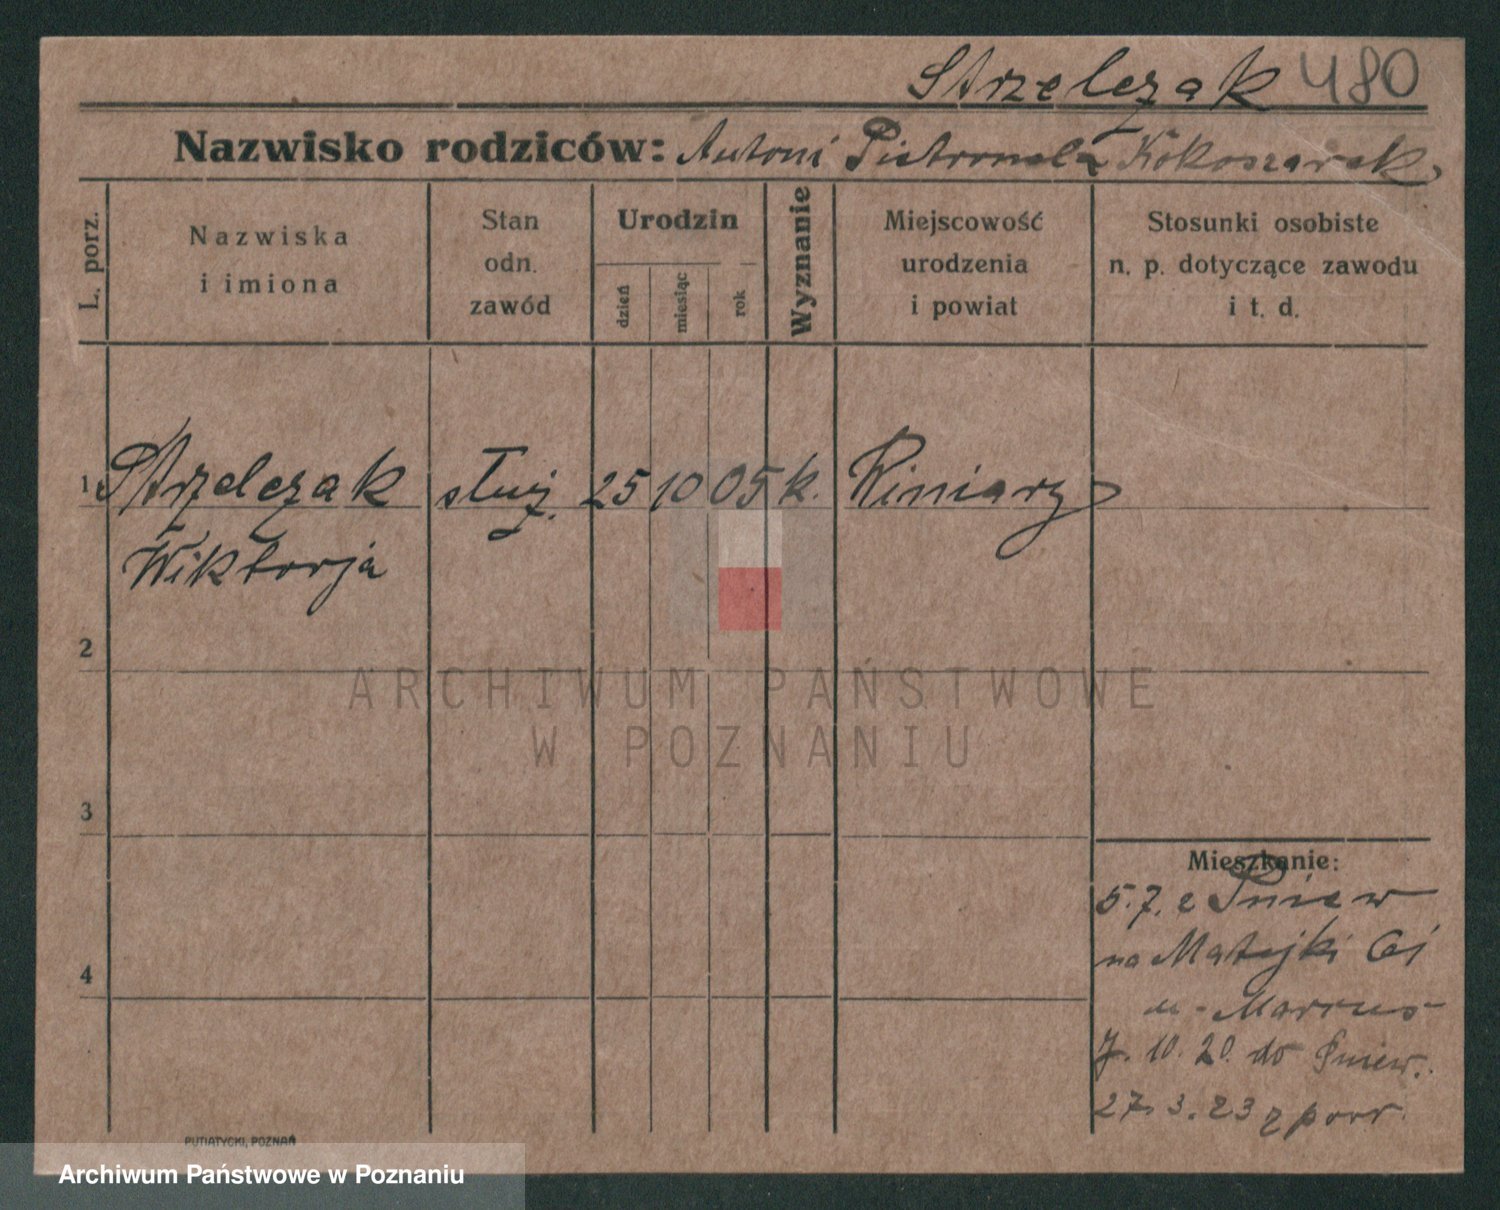 Strzelczak 480
Nazwisko rodziców: Antoni Pietronela Kokoszarek
L. porz.
Nazwiska
i imiona
Stan
odn.
zawód
Urodzin
dzień
miesiąc
rok
Wyznanie
Miejscowość
urodzenia
i powiat
Stosunki osobiste
n. p. dotyczące zawodu
i t. d.
1 Strzelczak służ. 25 10 05 k. Winiary
Wiktorja
2
ARCHIWUM PAŃSTWOWE
W POZNANIU
3
Mieszkanie:
5.7. z Pniew
na Matejki 61
4
u - Marcus
7. 10. 20. do Pniew.
27. 3. 23 z
PUTIATYCKI, POZNAŃ
Archiwum Państwowe w Poznaniu